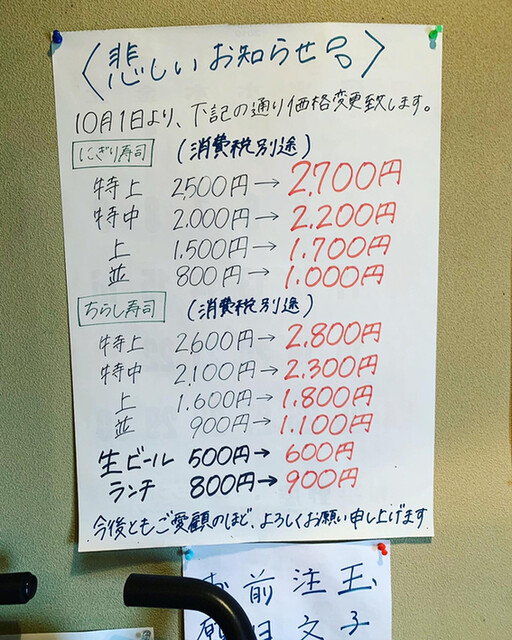 〈悲しいお知らせ〉
10月1日より、下記の通り価格変更致します。
にぎり寿司 (消費税別途)
特上 2,500円→2,700円
特中 2.000円→2.200円
上 1.500円→1.700円
並 800円→1.000円
ちらし寿司 (消費税別途)
特上 2600円→2.800円
特中 2,100円→2.300円
上 1.600円→1.800円
並 900円→1.100円
生ビール 500円→600円
ランチ 800円→900円
今後ともご愛顧のほど、よろしくお願い申し上げます
前注玉、